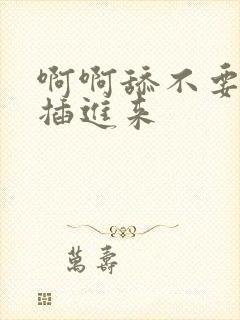 啊啊舔不要
插進来
萬壽